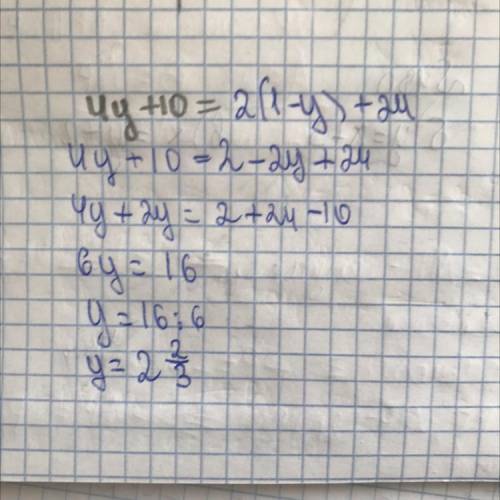 4y+10=2(1-y)+24
4y+10=2-2y+24
4y+2y=2+24-10
6y=16
y=16:6
y=2 2/3